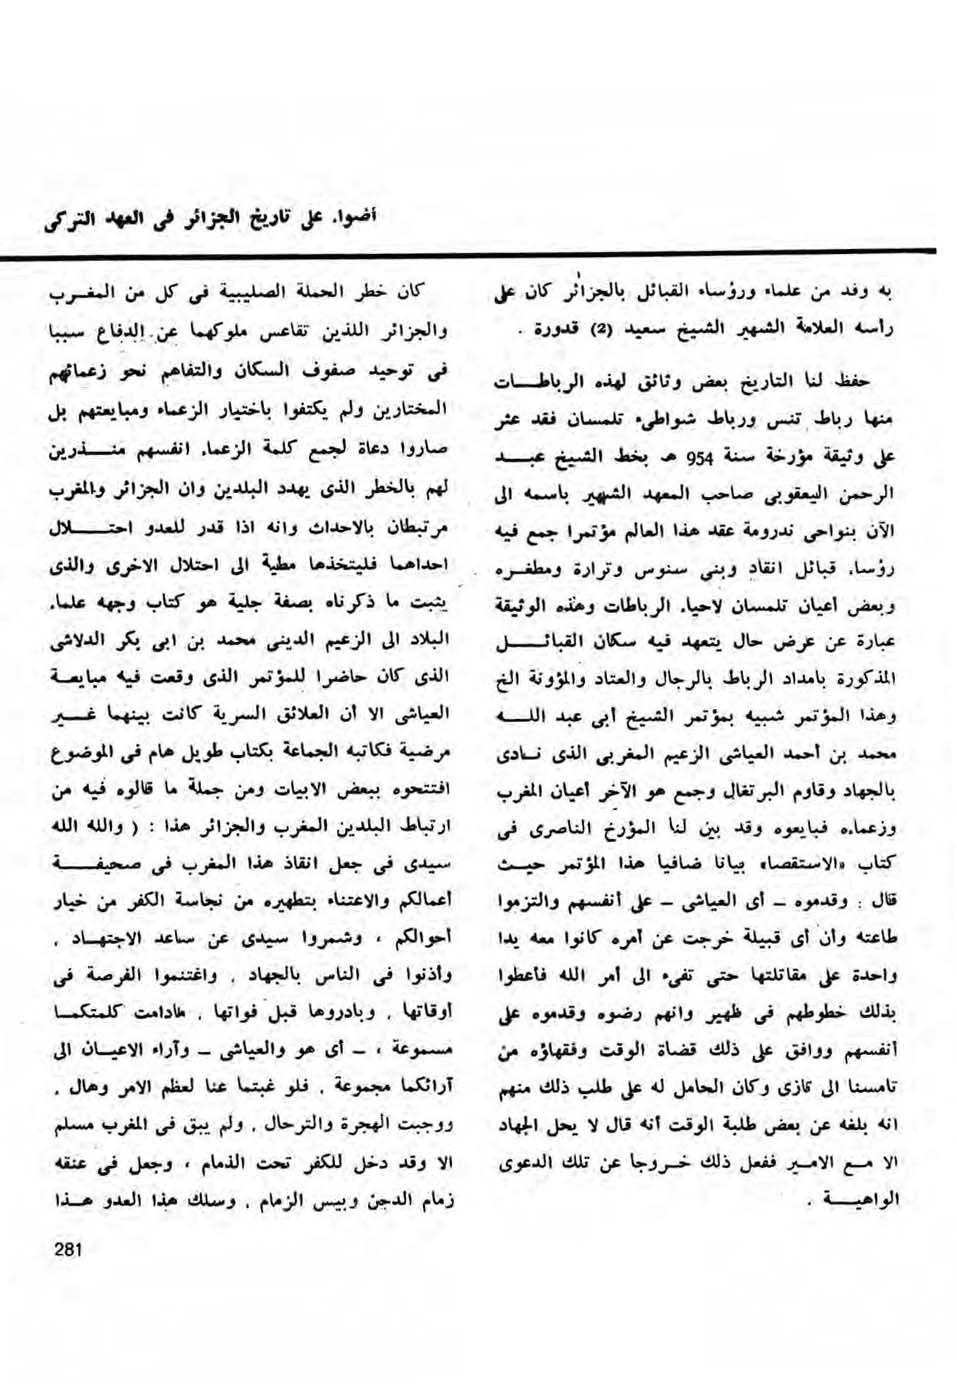 أضواء على تاريخ الجزائر فى العهد التركى
به وفد من علماء ورؤساء القبائل بالجزائر كان على
رأسه العلامة الشهير الشيخ سعيد (2) قدورة .
حفظ لنا التاريخ بعض وثائق لهذه الرباطـــات
منها رباط تنس ورباط شواطىء تلمسان فقد عثر
على وثيقة مؤرخة سنة 954 هـ بخط الشيخ عبـــد
الرحمن اليعقوبى صاحب المعهد الشهير باسمه الى
الآن بنواحى ندرومة عقد هذا العالم مؤتمرا جمع فيه
رؤساء قبائل انقاد وبنى سنوس وترارة ومطغــره
وبعض أعيان تلمسان لاحياء الرباطات وهذه الوثيقة
عبارة عن عرض حال يتعهد فيه سكان القبائـــــل
المذكورة بامداد الرباط بالرجال والعتاد والمؤونة الخ
وهذا المؤتمر شبيه بمؤتمر الشيخ أبى عبد اللـــه
محمد بن أحمد العياشى الزعيم المغربى الذى نــادى
بالجهاد وقاوم البرتغال وجمع هو الآخر أعيان المغرب
وزعماءه فبايعوه وقد بين لنا المؤرخ الناصرى فى
كتاب «الاستقصاء» بيانا ضافيا هذا المؤتمر حيــث
قال : وقدموه ــ أى العياشى ــ على أنفسهم والتزموا
طاعته وأن أى قبيلة خرجت عن أمره كانوا معه يدا
واحدة على مقاتلتها حتى تفىء الى أمر الله فأعطوا
بذلك خطوطهم فى ظهير وانهم رضوه وقدموه على
أنفسهم ووافق على ذلك قضاة الوقت وفقهاؤه من
تامسنا الى تازى وكان الحامل له على طلب ذلك منهم
انه بلغه عن بعض طلبة الوقت أنه قال لا يحل الجهاد
الا مــع الاميـر ففعل ذلك خــروجا عن تلك الدعوى
الواهيـــة .
كان خطر الحملة الصليبية فى كل من المغــرب
والجزائر اللذين تقاعس ملوكهما عن الدفاع سببا
فى توحيد صفوف السكان والتفاهم نحو زعمائهم
المختارين ولم يكتفوا باختيار الزعماء ومبايعتهم بل
صاروا دعاة لجمع كلمة الزعماء انفسهم منـــذرين
لهم بالخطر الذى يهدد البلدين وان الجزائر والمغرب
مرتبطان بالاحداث وانه اذا قدر للعدو احتـــــلال
احداهما فليتخذها مطية الى احتلال الاخرى والذى
يثبت ما ذكرناه بصفة جلية هو كتاب وجهه علماء
البلاد الى الزعيم الدينى محمد بن ابى بكر الدلاشى
الذى كان حاضرا للمؤتمر الذى وقعت فيه مبايعــة
العياشى الا أن العلائق السرية كانت بينهما غــير
مرضية فكاتبه الجماعة بكتاب طويل هام فى الموضوع
افتتحوه ببعض الابيات ومن جملة ما قالوه فيه من
ارتباط البلدين المغرب والجزائر هذا : ( والله الله
سيدى فى جعل انقاذ هذا المغرب فى صحيفـــــة
أعمالكم والاعتناء بتطهيره من نجاسة الكفر من خيار
أحوالكم ، وشمروا سيدى عن ساعد الاجتهــاد ،
وأذنوا فى الناس بالجهاد ، واغتنموا الفرصة فى
أوقاتها ، وبادروها قبل فواتها ، مادامت كلمتكمــا
مسموعة ، ــ أى هو والعياشى ــ وآراء الاعيــان الى
آرائكما مجموعة ، فلو غبتما عنا لعظم الامر وهال ،
ووجبت الهجرة والترحال ، ولم يبق فى المغرب مسلم
الا وقد دخل للكفر تحت الذمام ، وجعل فى عنقه
زمام الدجن وبيس الزمام ، وسلك هذا العدو هــذا
281